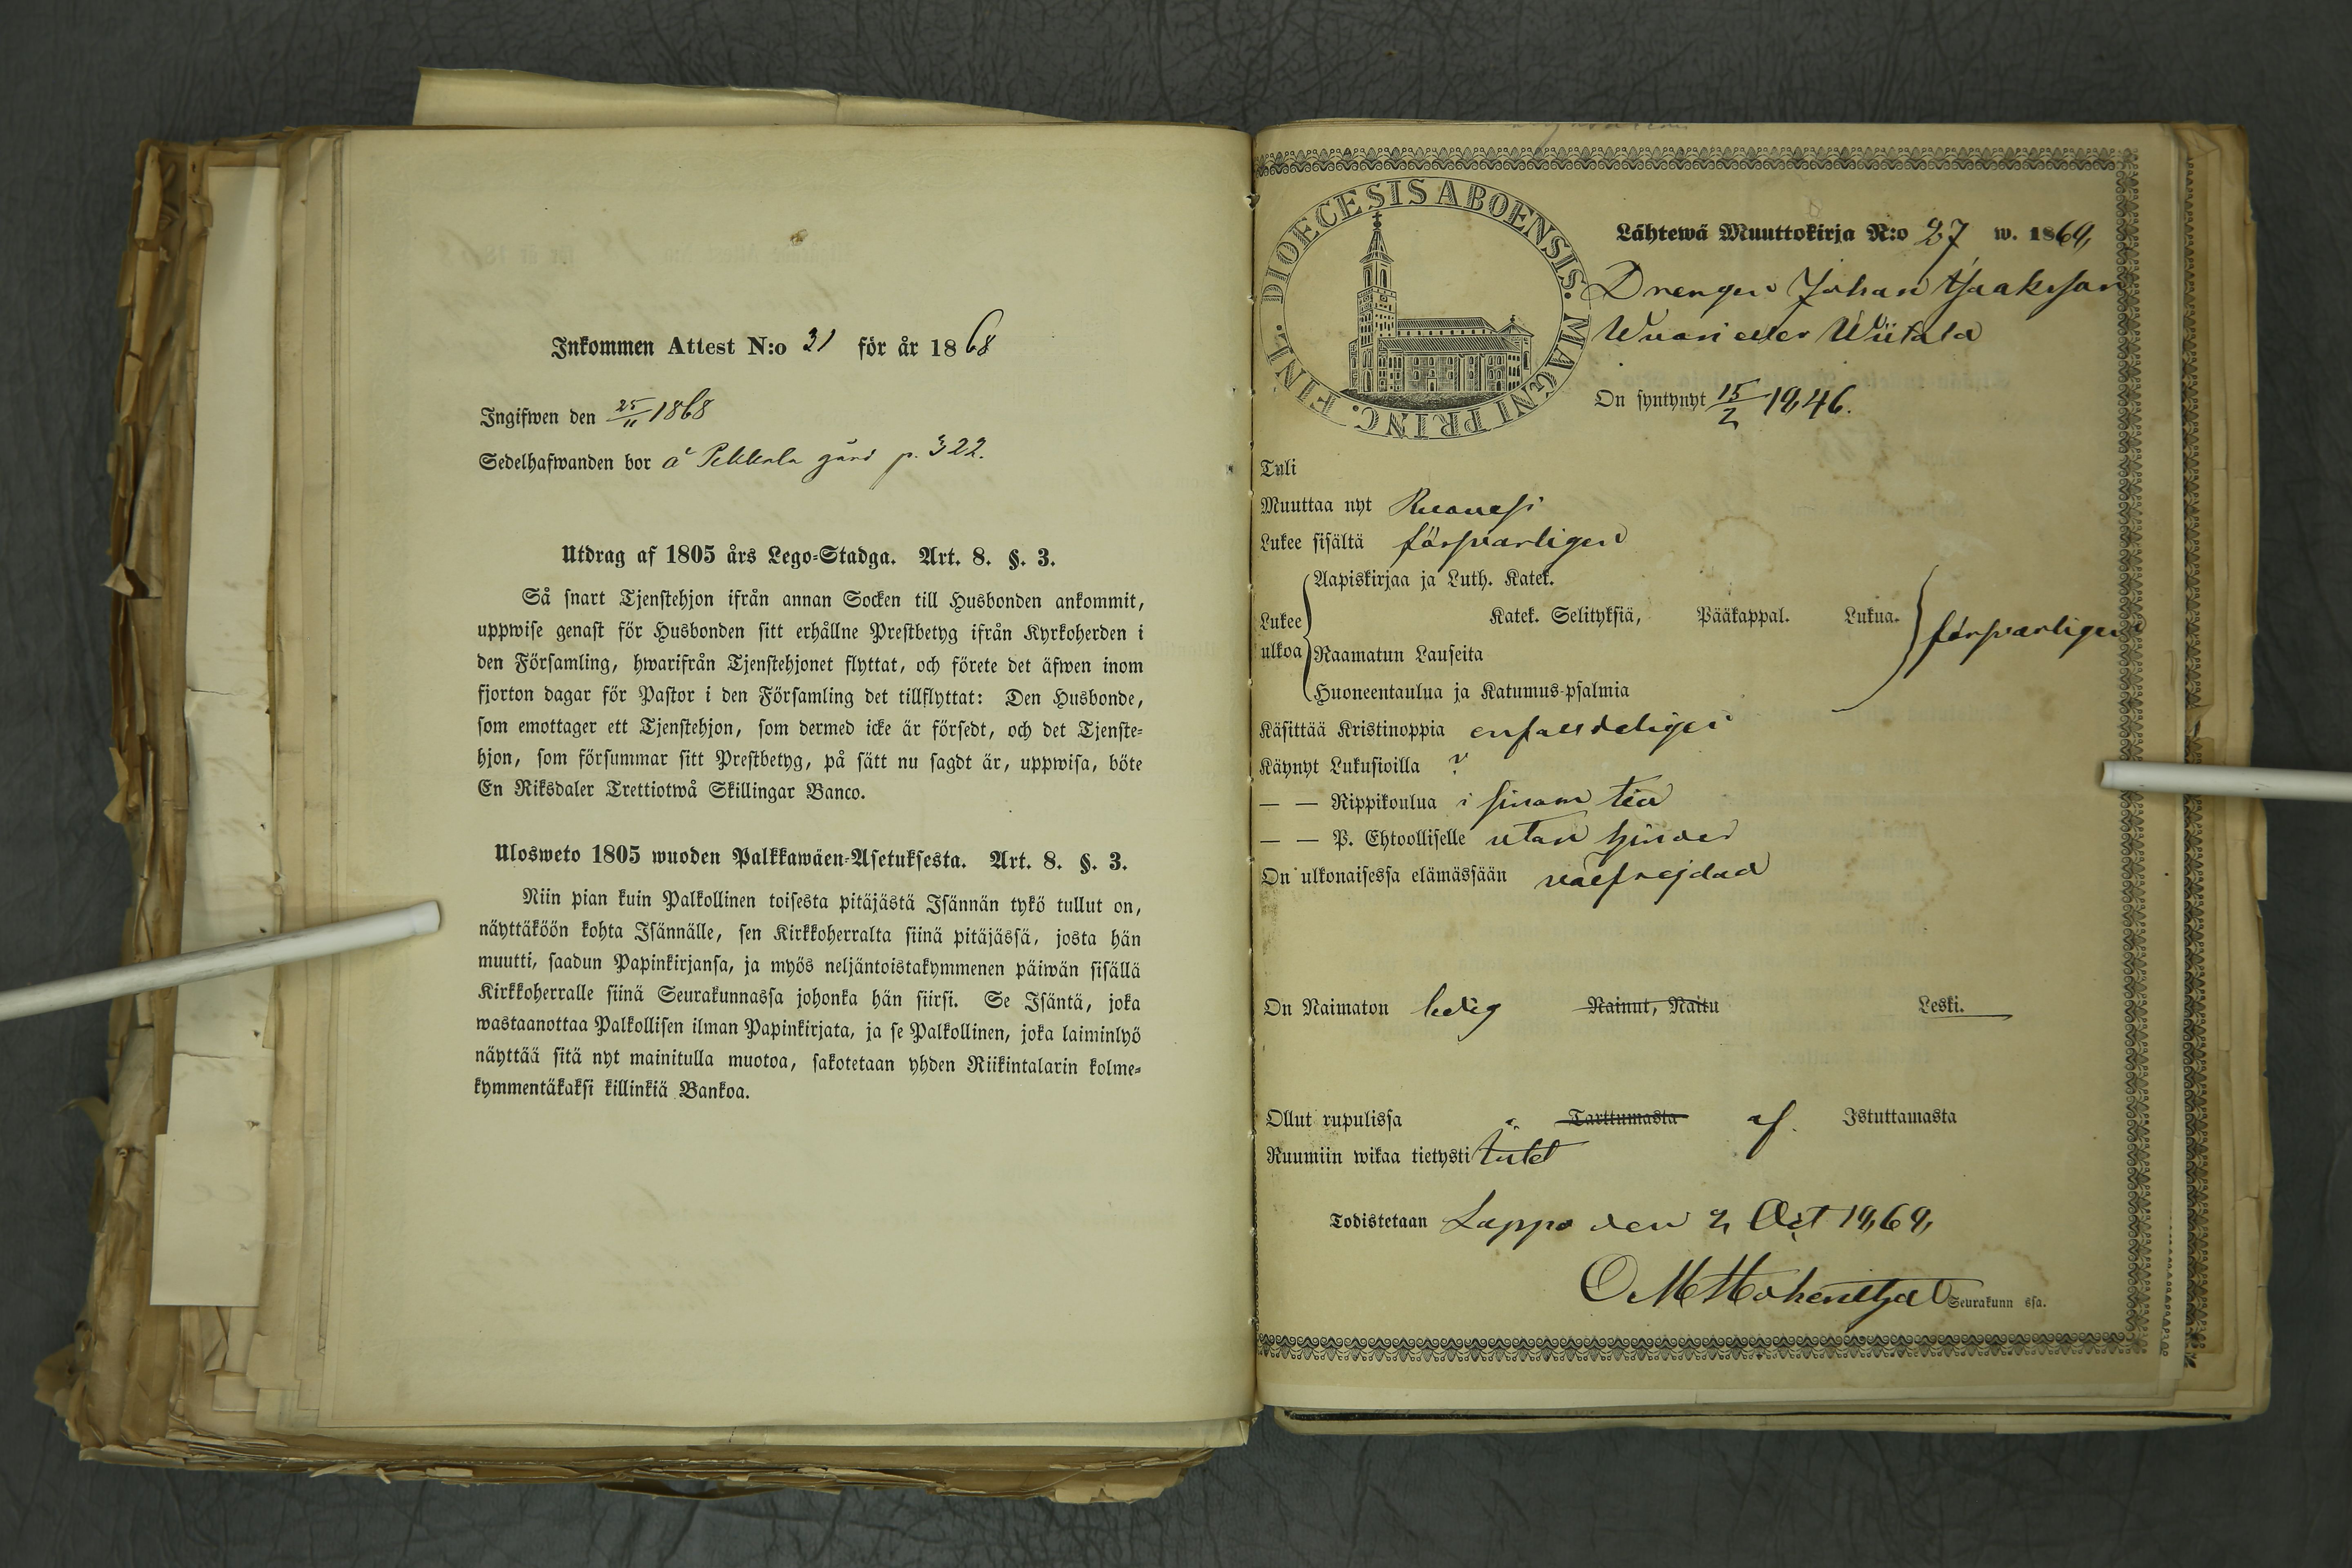 Inkommen Attest N:o 31 för år 1868
Ingifwen den 25/11 1868
Sedelhafwanden bor å Pekkala gård p. 322.
Utdrag af 1805 års Lego-Stadga. Art. 8. §. 3.
Så snart Tjenstehjon ifrån annan Socken till Husbonden ankommit,
uppwise genast för Husbonden sitt erhållne Prestbetyg ifrån Kyrkoherden i
den Församling, hwarifrån Tjenstehjonet flyttat, och förete det äfwen inom
fjorton dagar för Pastor i den Församling det tillflyttat: Den Husbonde,
som emottager ett Tjenstehjon, som dermed icke är försedt, och det Tjenste-
hjon, som försummar sitt Prestbetyg, på sätt nu sagdt är, uppwisa, böte
En Riksdaler Trettiotwå Skillingar Banco.
Ulosweto 1805 wuoden Palkkawäen-Asetuksesta. Art. 8. §. 3.
Niin pian kuin Palkollinen toisesta pitäjästä Isännän tykö tullut on,
näyttäköön kohta Isännälle, sen Kirkkoherralta siinä pitäjässä, josta hän
muutti, saadun Papinkirjansa, ja myös neljäntoistakymmenen päiwän sisällä
Kirkkoherralle siinä Seurakunnassa johonka hän siirsi. Se Isäntä, joka
wastaanottaa Palkollisen ilman Papinkirjata, ja se Palkollinen, joka laiminlyö
näyttää sitä nyt mainitulla muotoa, sakotetaan yhden Riikintalarin kolme-
kymmentäkaksi killinkiä Bankoa.
DIOECESIS ABOENSIS. MAGNI PRINC. FINL.
Lähtewä Muuttokirja N:o 27 w. 1869,
Drengen Johan Isaksson
eller Wiitala
On syntynyt 15/2 1846.
Tuli
Muuttaa nyt Ruovesi
Lukee sisältä försvarligen
Lukee ulkoa
Aapiskirjaa ja Luth. Katek.
Katek. Selityksiä, Pääkappal. Lukua.
försvarligen
Raamatun Lauseita
Huoneentaulua ja Katumus-psalmia
Käsittää Kristinoppia enfaldeligen
Käynyt Lukusioilla ?
— — Rippikoulua i sinom tid
— — P. Ehtoolliselle utan hinder
On ulkonaisessa elämässään välfrejdad
On Naimaton ledig Nainut, Naitu Leski.
Ollut rupulissa Tarttumasta af. Istuttamasta
Ruumiin wikaa tietysti
Todistetaan Lappo den 2 Oct 1869,
Seurakunn ssa.